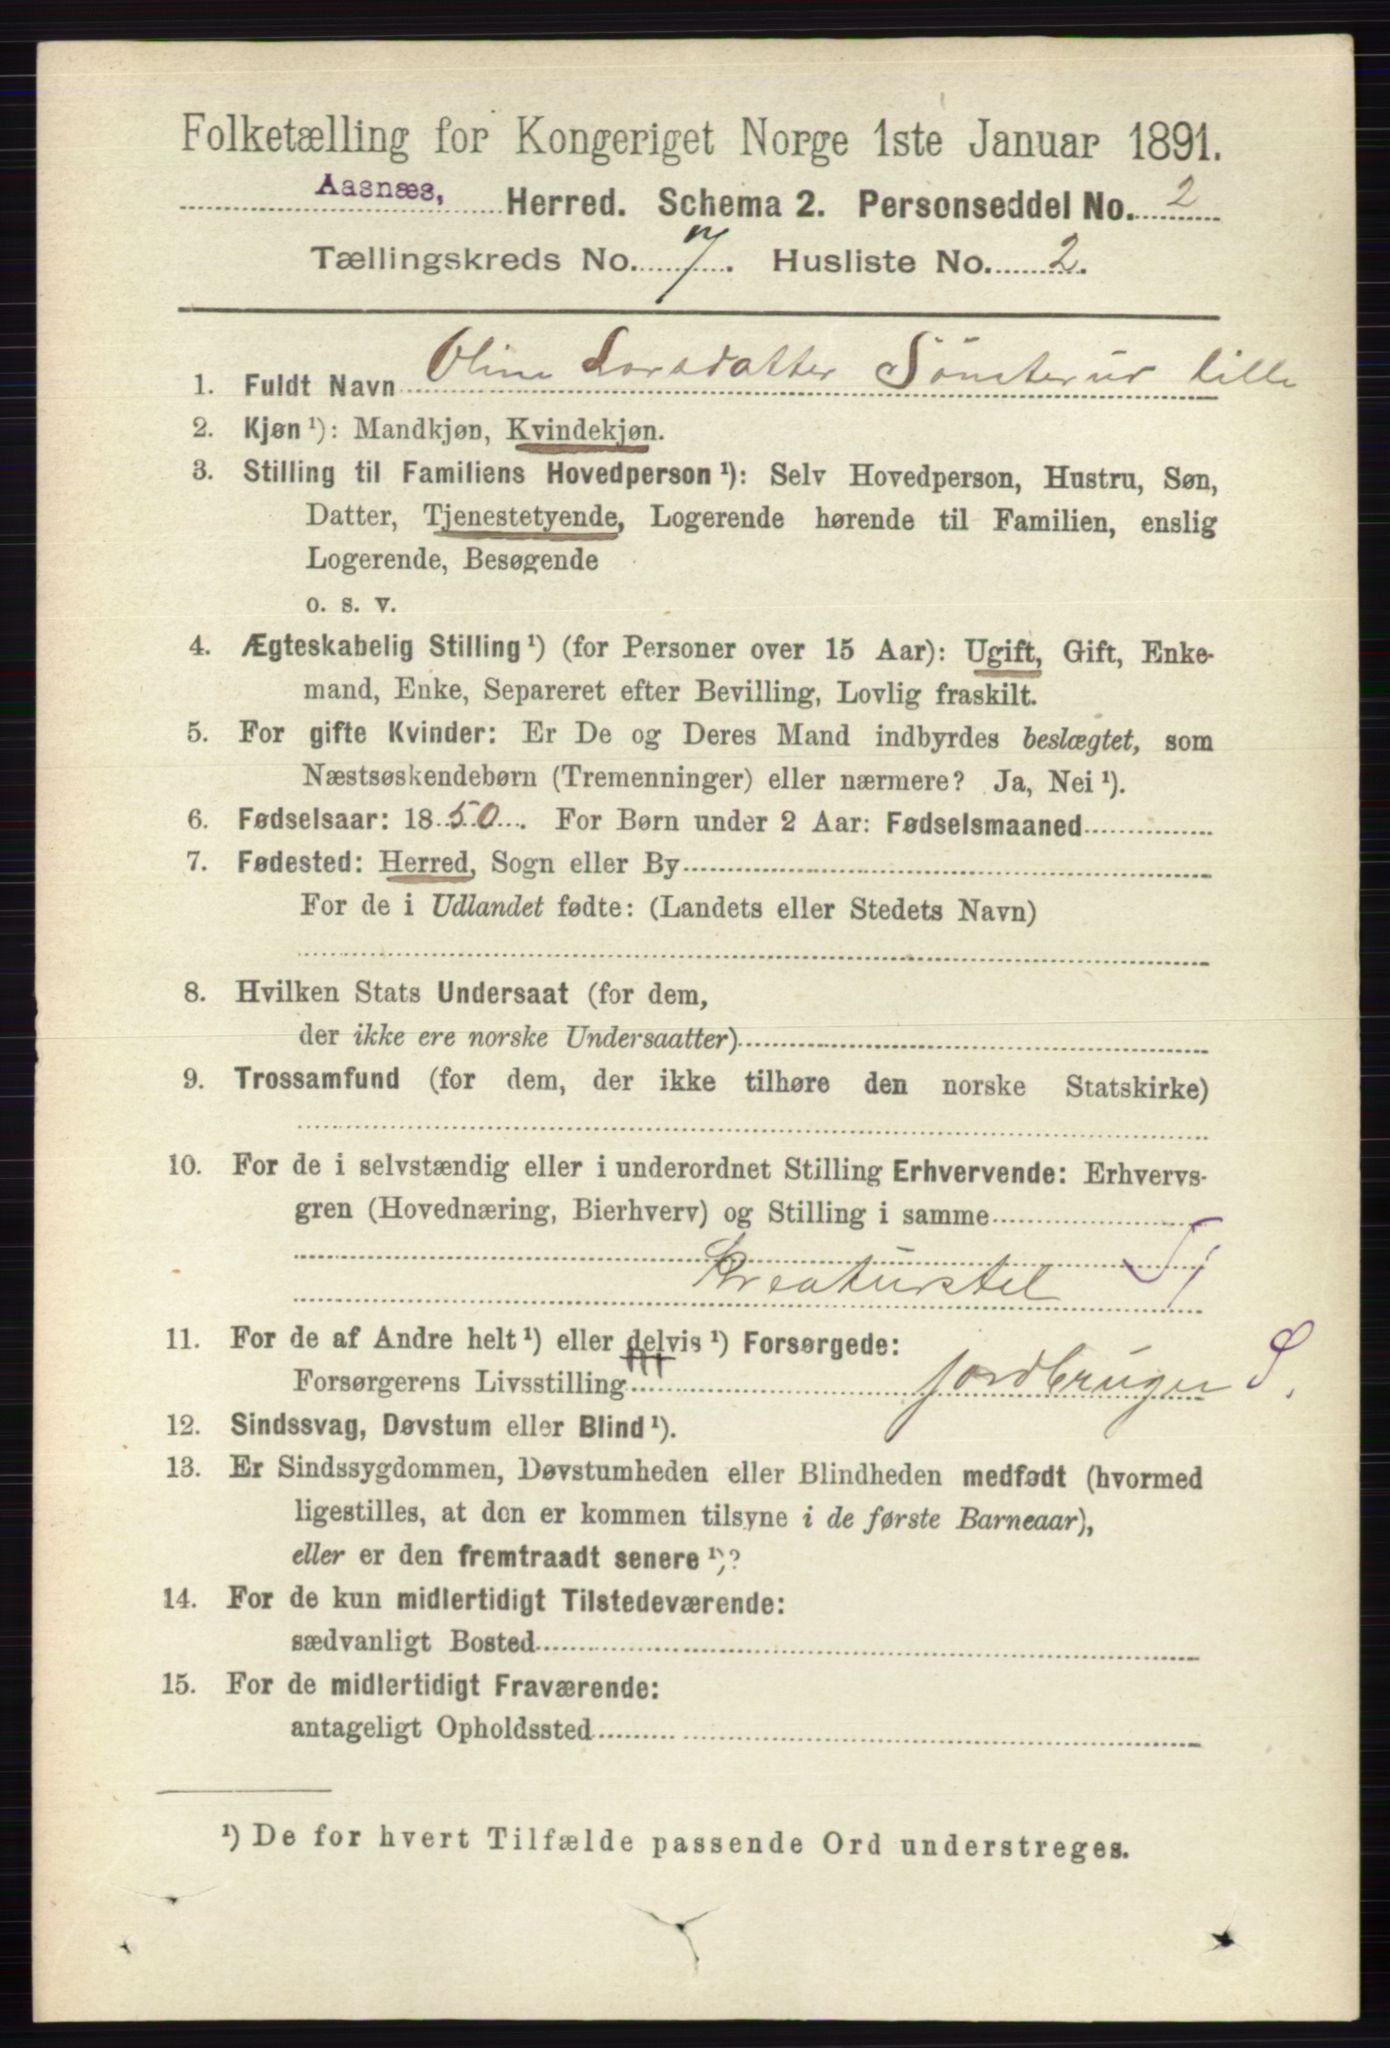 Folketælling for Kongeriget Norge 1ste Januar 1891.
Aasnæs, Herred. Schema 2. Personseddel No. 2
Tællingskreds No. 7. Husliste No. 2.
1. Fuldt Navn Oline Larsdatter Sönsterud lille
2. Kjøn ¹): Mandkjøn, Kvindekjøn.
3. Stilling til Familiens Hovedperson ¹): Selv Hovedperson, Hustru, Søn,
Datter, Tjenestetyende, Logerende hørende til Familien, enslig
Logerende, Besøgende
o. s. v.
4. Ægteskabelig Stilling ¹) (for Personer over 15 Aar): Ugift, Gift, Enke-
mand, Enke, Separeret efter Bevilling, Lovlig fraskilt.
5. For gifte Kvinder: Er De og Deres Mand indbyrdes beslægtet, som
Næstsøskendebørn (Tremenninger) eller nærmere? Ja, Nei ¹).
6. Fødselsaar: 1850. For Børn under 2 Aar: Fødselsmaaned
7. Fødested: Herred, Sogn eller By
For de i Udlandet fødte: (Landets eller Stedets Navn)
8. Hvilken Stats Undersaat (for dem,
der ikke ere norske Undersaatter)
9. Trossamfund (for dem, der ikke tilhøre den norske Statskirke)
10. For de i selvstændig eller i underordnet Stilling Erhvervende: Erhvervs-
gren (Hovednæring, Bierhverv) og Stilling i samme
Kreaturstel Tj
11. For de af Andre helt ¹) eller delvis ¹) Forsørgede:
Forsørgerens Livsstilling jordbruger S.
12. Sindssvag, Døvstum eller Blind ¹).
13. Er Sindssygdommen, Døvstumheden eller Blindheden medfødt (hvormed
ligestilles, at den er kommen tilsyne i de første Barneaar),
eller er den fremtraadt senere ¹)?
14. For de kun midlertidigt Tilstedeværende:
sædvanligt Bosted
15. For de midlertidigt Fraværende:
antageligt Opholdssted
¹) De for hvert Tilfælde passende Ord understreges.